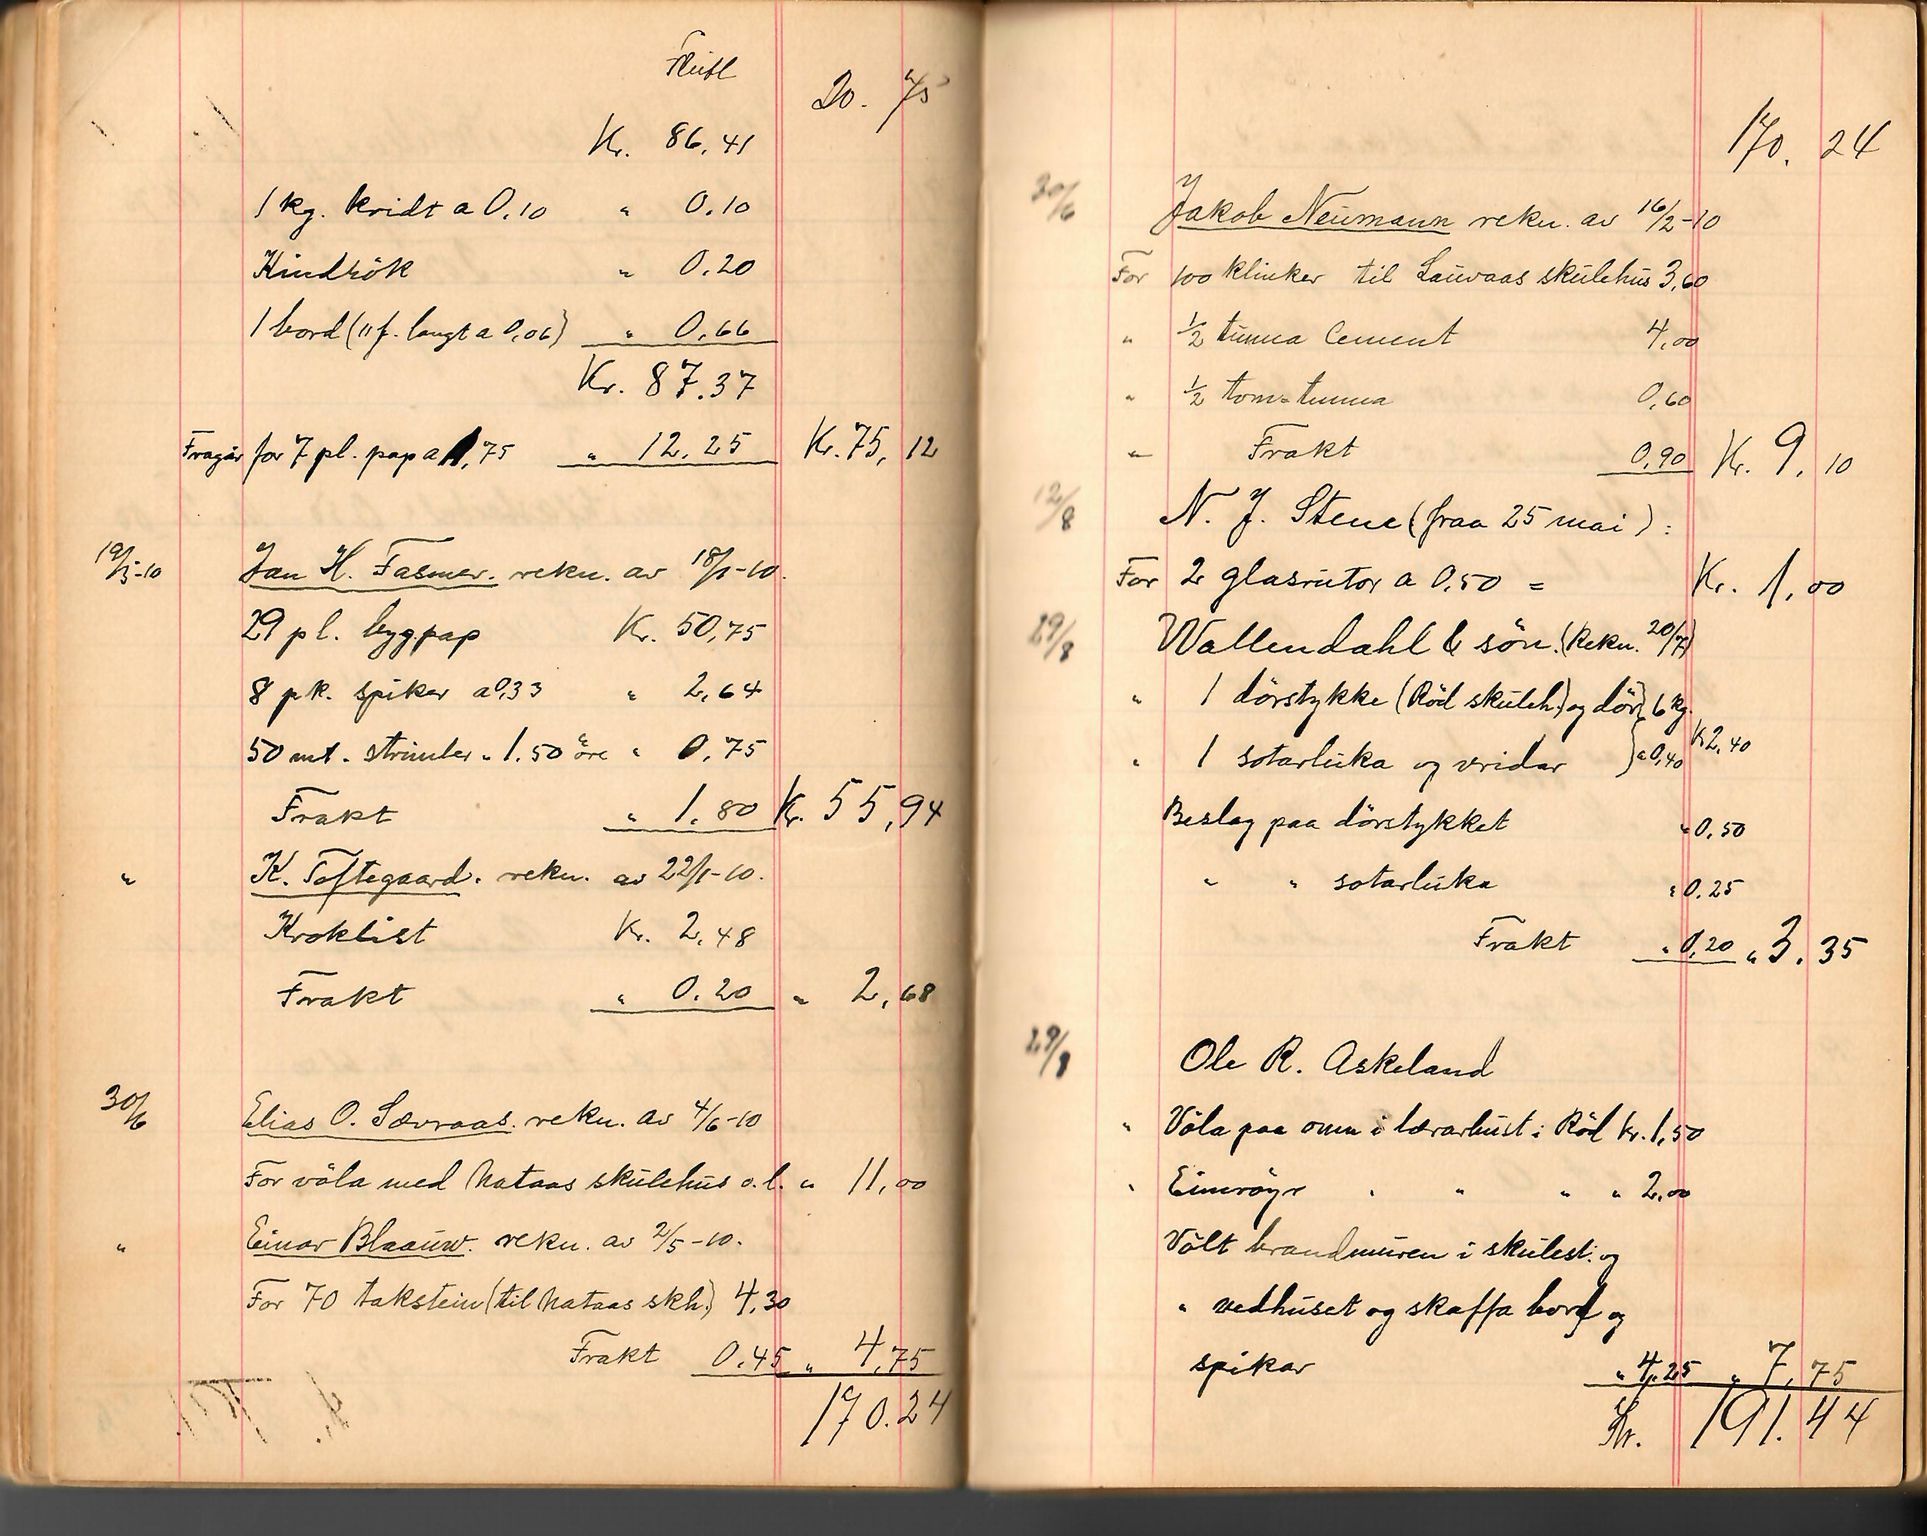 Flutt 20. 75
Kr. 86,41
1 kg. kridt a 0,10 " 0.10
Kindrök " 0.20
1 bord (11 f. langt a 0,06) " 0.66
Kr. 87.37
Fragår for 7 pl. pap a 1,75 " 12.25 Kr. 75,12
19/5-10 Jan H. Fasmer. rekn. av 18/1-10.
29 pl. bygpap Kr. 50,75
8 pk. spiker a 0,33 " 2,64
50 mt. strimler " 1.50 öre " 0.75
Frakt " 1.80 Kr. 55,94
" K. Toftegaard. rekn. av 22/1-10.
Kroklist Kr. 2,48
Frakt " 0.20 " 2,68
30/6 Elias O. Sævraas. rekn. av 4/6-10
For völa med Nataas skulehus o.l. " 11,00
" Einar Blaauw. rekn. av 2/5-10.
For 70 takstein (til Nataas skh.) 4,30
Frakt 0.45 " 4,75
170.24
170. 24
30/6 Jakob Neumann rekn. av 16/2-10
For 100 klinker til Lauvaas skulehus 3,60
" 1/2 tunna Cement 4,00
" 1/2 tom-tunna 0,60
" Frakt 0,90 Kr. 9,10
12/8 N. J. Stene (fraa 25 mai) :
For 2 glasrutor a 0,50 = Kr. 1,00
29/8 Wallendahl & sön. (Rekn. 20/7)
" 1 dörstykke (Röd skuleh.) og dör } 6 kg.
" 1 sotarluka og vridar } a 0,40 Kr 2,40
Beslag paa dörstykket " 0,50
" " sotarluka " 0.25
Frakt " 0,20 " 3.35
29/8 Ole R. Askeland
" Völa paa omn i lærarhust i Röd Kr. 1,50
" Eimröyr " " " " 2,00
Völt brandmuren i skulest. og
" vedhuset og skaffa bord og
spikar " 4,25 " 7,75
Kr. 191.44